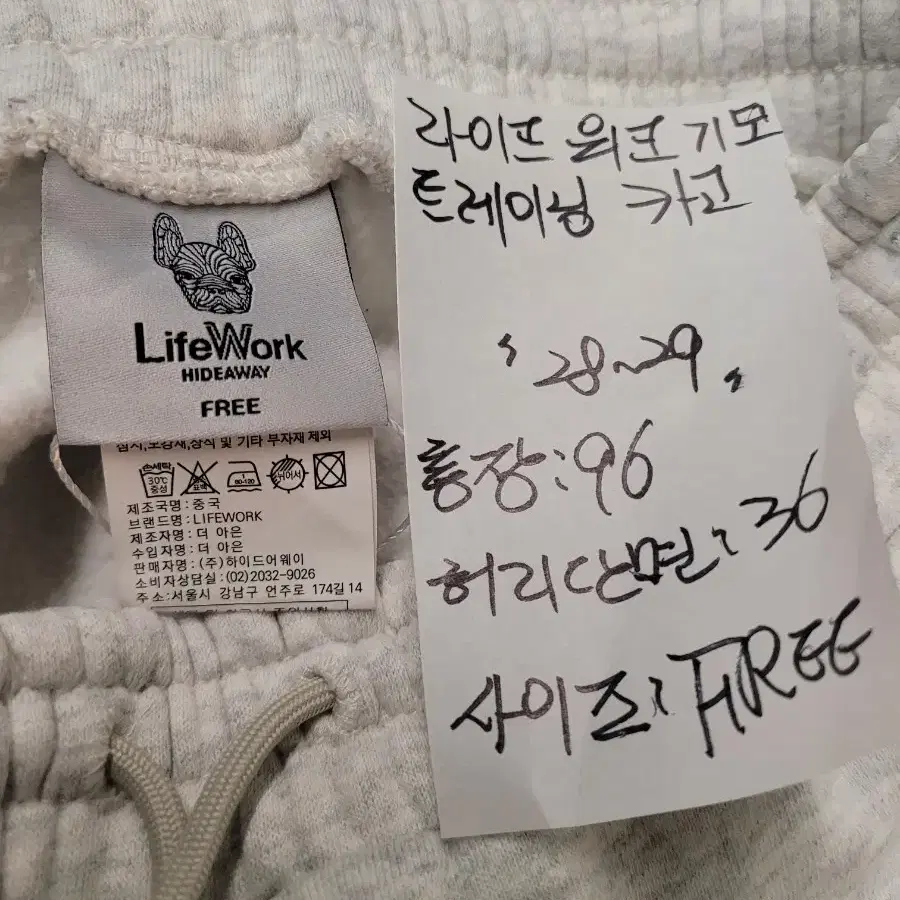 LifeWork
HIDEAWAY
FREE
심지,보강재,장식 및 기타 부자재 제외
손세탁
30℃
중성
표백
80-120
뉘어서
제조국명 : 중국
브랜드명 : LIFEWORK
제조자명 : 더 아은
수입자명 : 더 아은
판매자명 : (주)하이드어웨이
소비자상담실 : (02)2032-9026
주소 : 서울시 강남구 언주로 174길 14
라이프 워크 기모
트레이닝 카고
" 28~29 "
총장:96
허리단면:36
사이즈:FREE